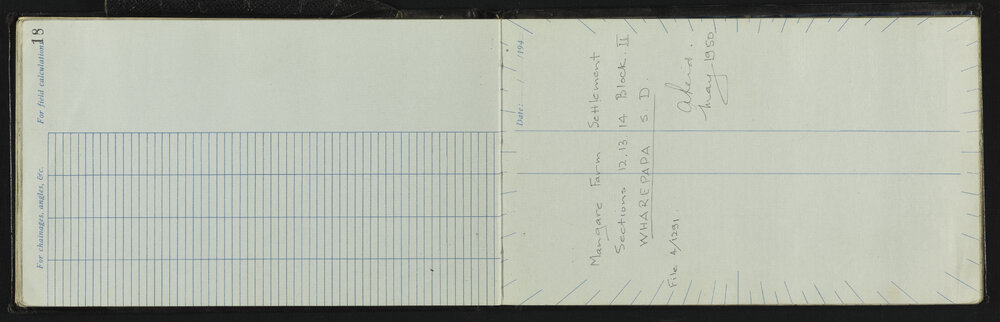 18
For field calculations
For chainages, angles, &c.
Date: / /194
Mangare Farm Settlement
Sections 12. 13 14 Block. II
WHAREPAPA S. D.
May 1950
File 4/1291.